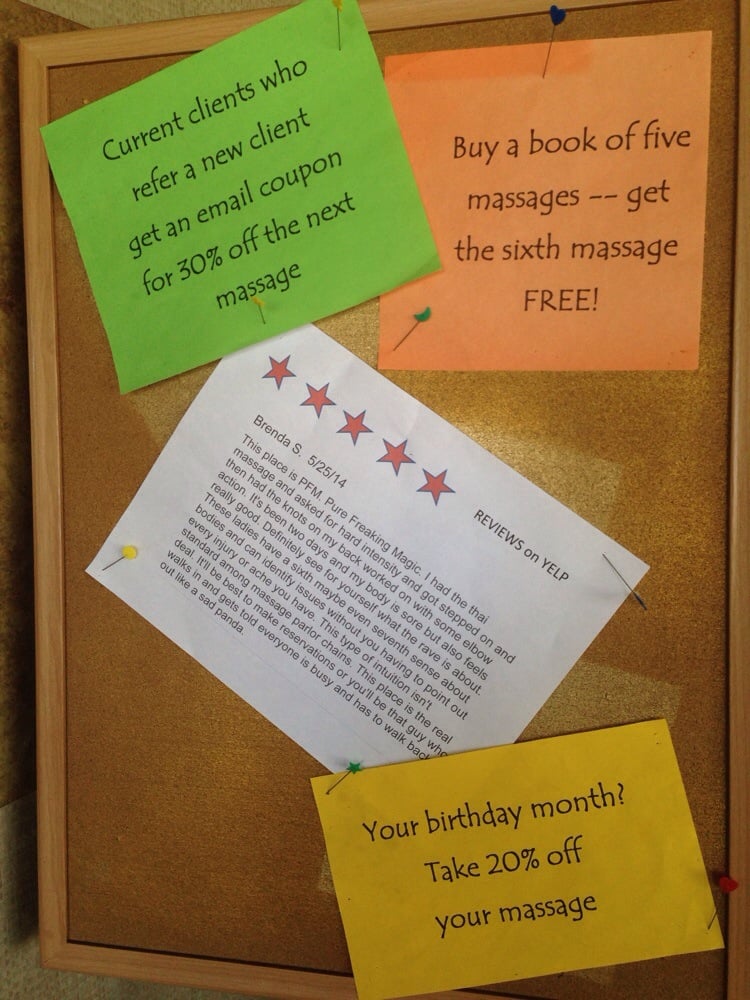 Current clients who
refer a new client
get an email coupon
for 30% off the next
massage
Buy a book of five
massages -- get
the sixth massage
FREE!
REVIEWS on YELP
Brenda S. 5/25/14
This place is PFM. Pure Freaking Magic. I had the thai
massage and asked for hard intensity and got stepped on and
then had the knots on my back worked on with some elbow
action. It's been two days and my body is sore but also feels
really good. Definitely see for yourself what the rave is about.
These ladies have a sixth maybe even seventh sense about
bodies and can identify issues without you having to point out
every injury or ache you have. This type of intuition isn't
standard among massage parlor chains. This place is the real
deal. It'll be best to make reservations or you'll be that guy who
walks in and gets told everyone is busy and has to walk back
out like a sad panda.
Your birthday month?
Take 20% off
your massage